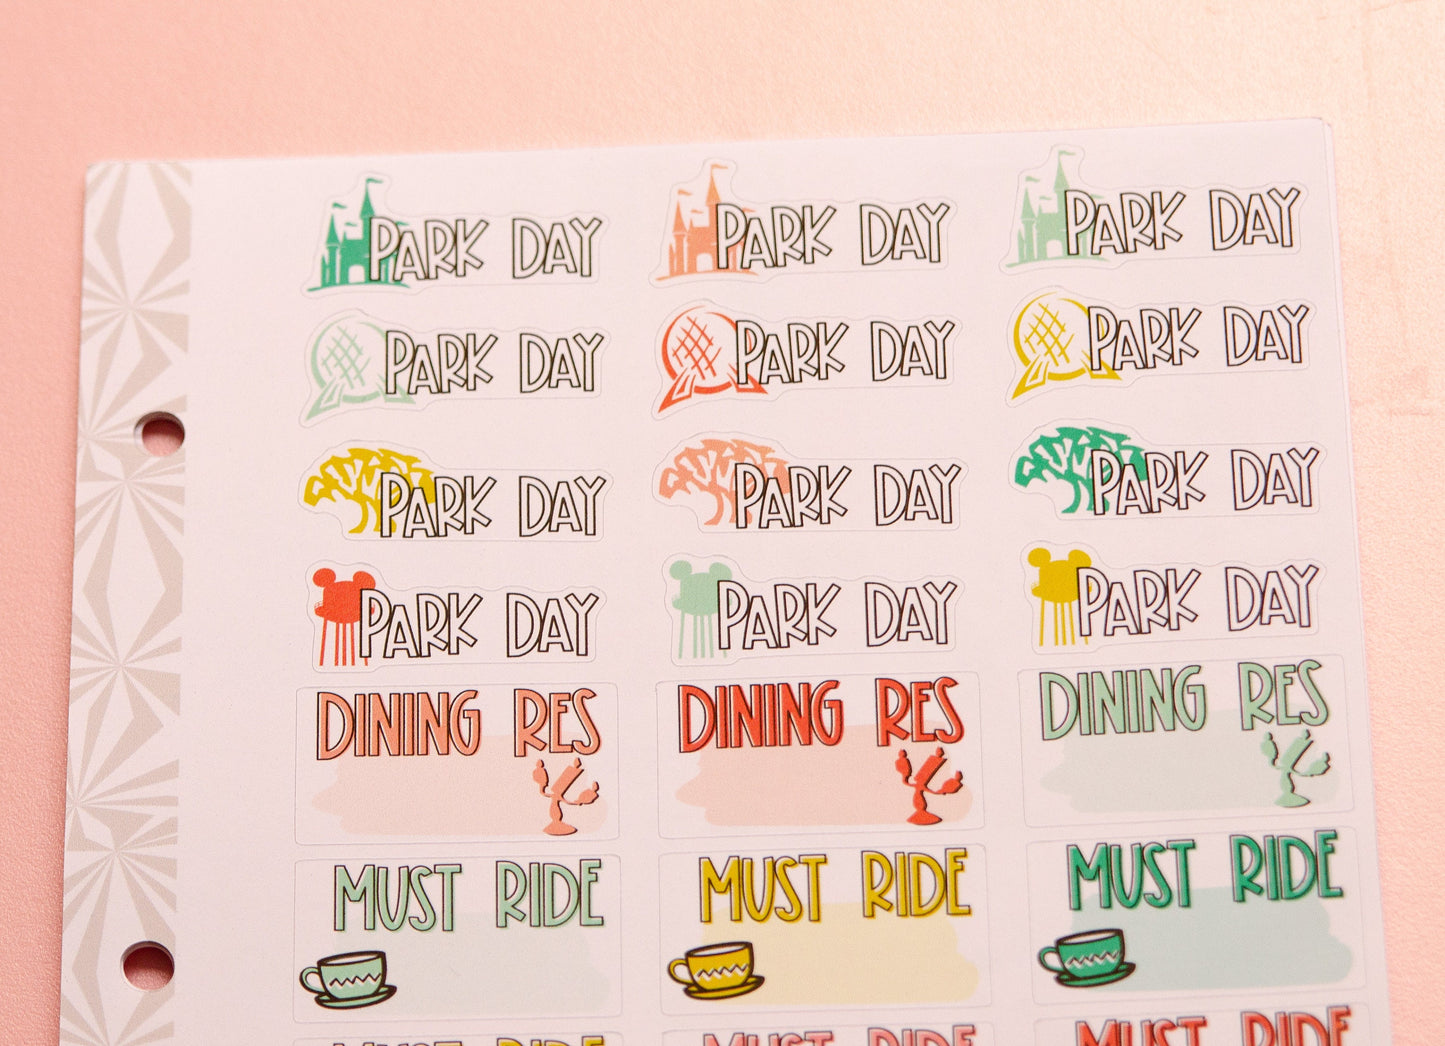 PARK DAY PARK DAY PARK DAY
PARK DAY PARK DAY PARK DAY
PARK DAY PARK DAY PARK DAY
PARK DAY PARK DAY PARK DAY
DINING RES DINING RES DINING RES
MUST RIDE MUST RIDE MUST RIDE
MUST RIDE MUST RIDE MUST RIDE